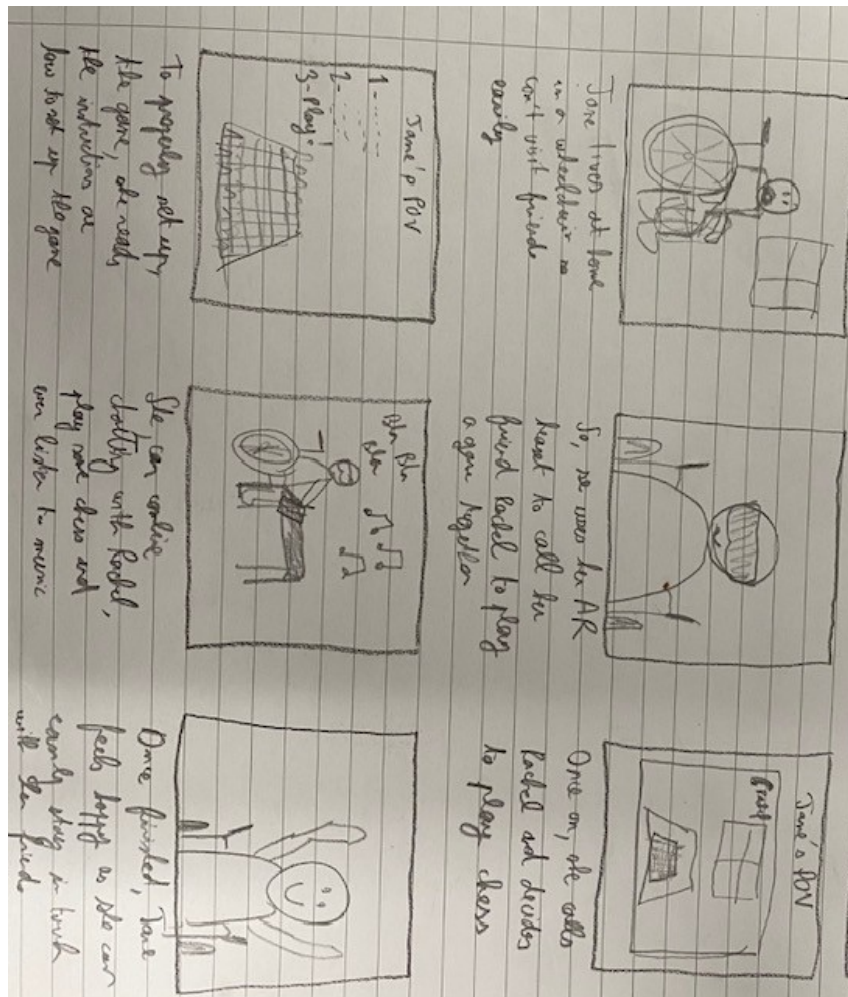 Jane lives at home
in a wheelchair so
can't visit friends
easily
So, she uses her AR
headset to call her
friend Rachel to play
a game together
Jane's POV
Once on, she calls
Rachel and decides
to play chess
Jane's POV
1-
2-
3-Play!
To properly set up,
the game, she reads
the instructions on
how to set up the game
Bla Bla
Bla
She can continue
chatting with Rachel,
play some chess and
even listen to music
Once finished, Jane
feels happy as she can
easily stay in touch
with her friends